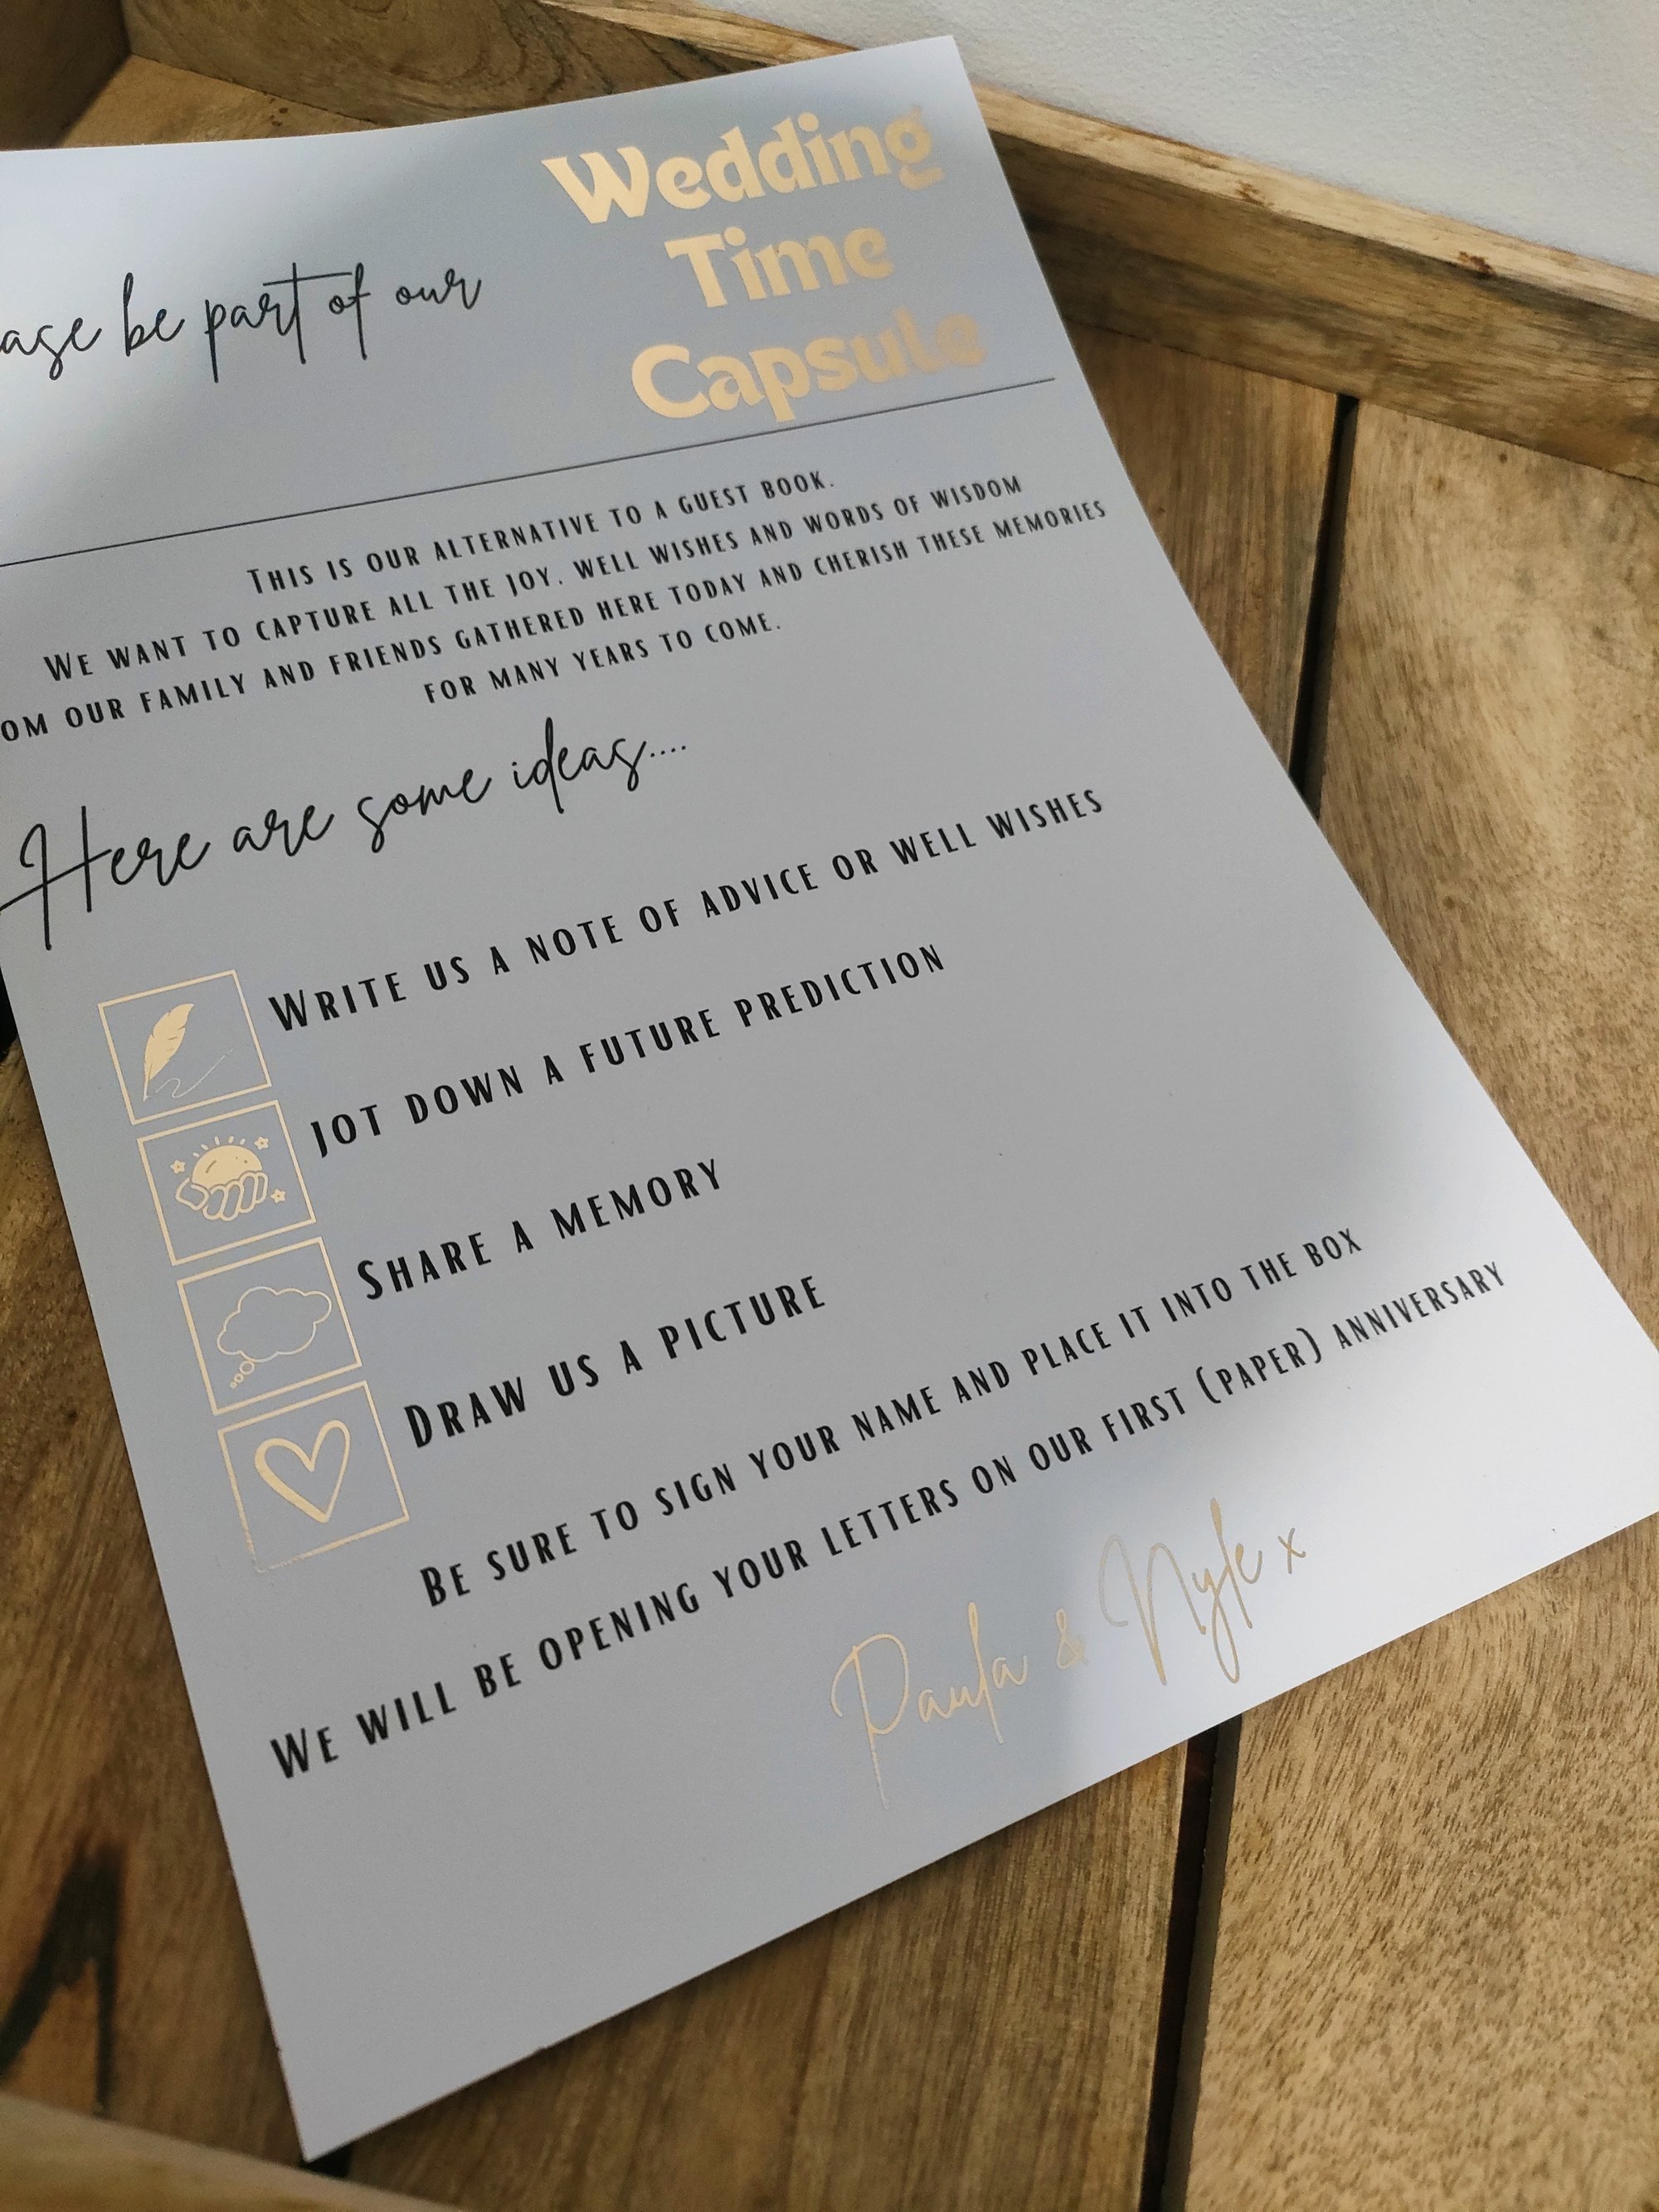 ase be part of our
Wedding
Time
Capsule
This is our alternative to a guest book.
We want to capture all the joy, well wishes and words of wisdom
om our family and friends gathered here today and cherish these memories
for many years to come.
Here are some ideas....
Write us a note of advice or well wishes
Jot down a future prediction
Share a memory
Draw us a picture
Be sure to sign your name and place it into the box
We will be opening your letters on our first (paper) anniversary
Paula & Nyle x